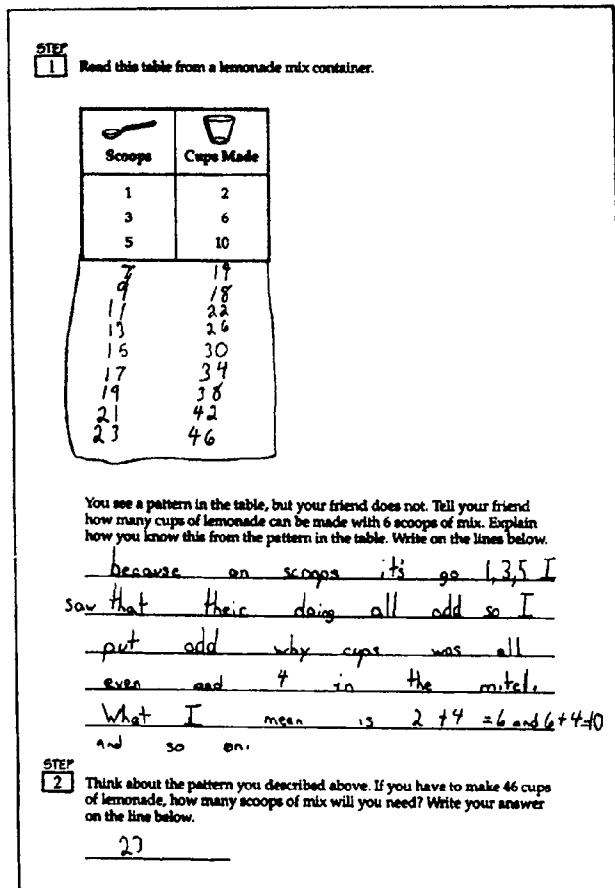 STEP
1 Read this table from a lemonade mix container.
Scoops Cups Made
1 2
3 6
5 10
7 14
9 18
11 22
13 26
15 30
17 34
19 38
21 42
23 46
You see a pattern in the table, but your friend does not. Tell your friend
how many cups of lemonade can be made with 6 scoops of mix. Explain
how you know this from the pattern in the table. Write on the lines below.
because on scoops it's go 1,3,5 I
saw that their doing all odd so I
put odd why cups was all
even and 4 in the mitel.
What I mean is 2+4=6 and 6+4=10
and so on.
STEP
2 Think about the pattern you described above. If you have to make 46 cups
of lemonade, how many scoops of mix will you need? Write your answer
on the line below.
23